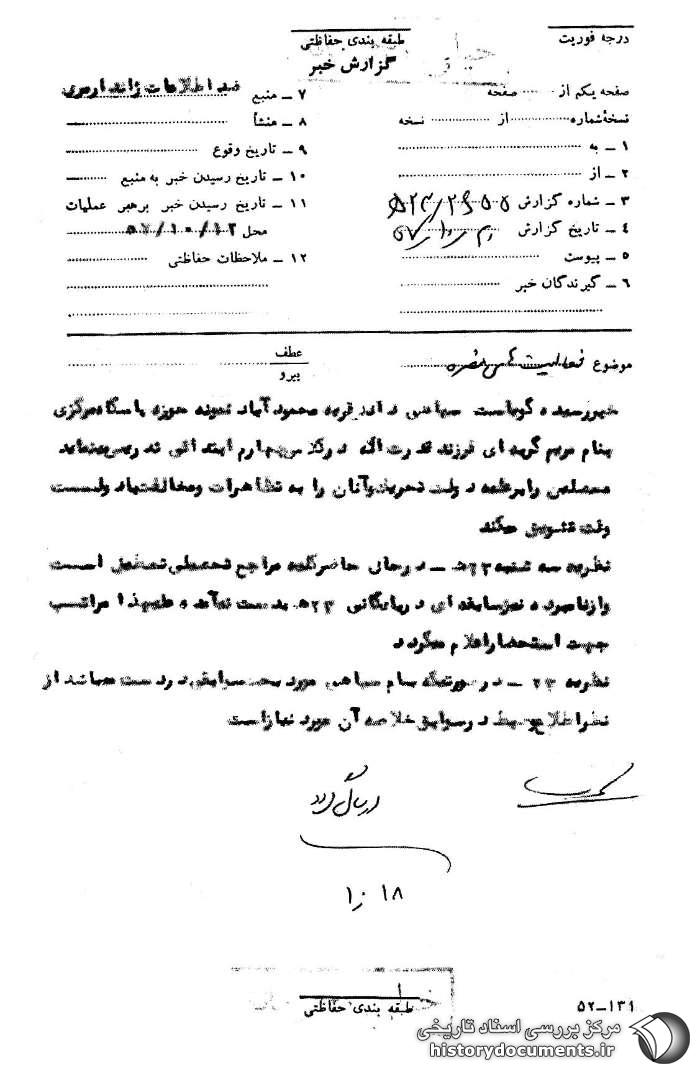 درجه فوریت
طبقه بندی حفاظتی
گزارش خبر
صفحه یکم از ........ صفحه
نسخه شماره ........ از ........ نسخه
۱ ـ به
۲ ـ از
۳ ـ شماره گزارش
۴ ـ تاریخ گزارش
۵ ـ پیوست
۶ ـ گیرندگان خبر
۷ ـ منبع ضد اطلاعات ژاندارمری
۸ ـ منشأ
۹ ـ تاریخ وقوع
۱۰ ـ تاریخ رسیدن خبر به منبع
۱۱ ـ تاریخ رسیدن خبر برهبر عملیات
محل ۵۷/۱۰/۱۲
۱۲ ـ ملاحظات حفاظتی
موضوع فعالیت
عطف
پیرو
خبر رسیده گویاست سپاهی دانش قریه محمودآباد نمونه حوزه پاسگاه مرکزی
بنام مریم فرزند قدرت اله در کلاس چهارم ابتدائی تدریس مینماید
محصلین را برعلیه دولت تحریک و آنان را به تظاهرات و مخالفت با دولت
وقت تشویق میکند
نظریه سه شنبه ۲۳ه ـ در حال حاضر کلیه مراجع تحصیلی تعطیل است
و از نامبرده نیز سابقه ای در بایگانی ۲۳ه بدست نیامد علیهذا مراتب
جهت استحضار اعلام میگردد
نظریه ۲۳ ـ در صورتیکه نام سپاهی مورد بحث درست میباشد از
نظر اطلاع و ضبط در سوابق خلاصه آن مورد نیاز است
۱۸ ر۱۰
طبقه بندی حفاظتی
۵۲ـ۱۳۱
مرکز بررسی اسناد تاریخی
historydocuments.ir